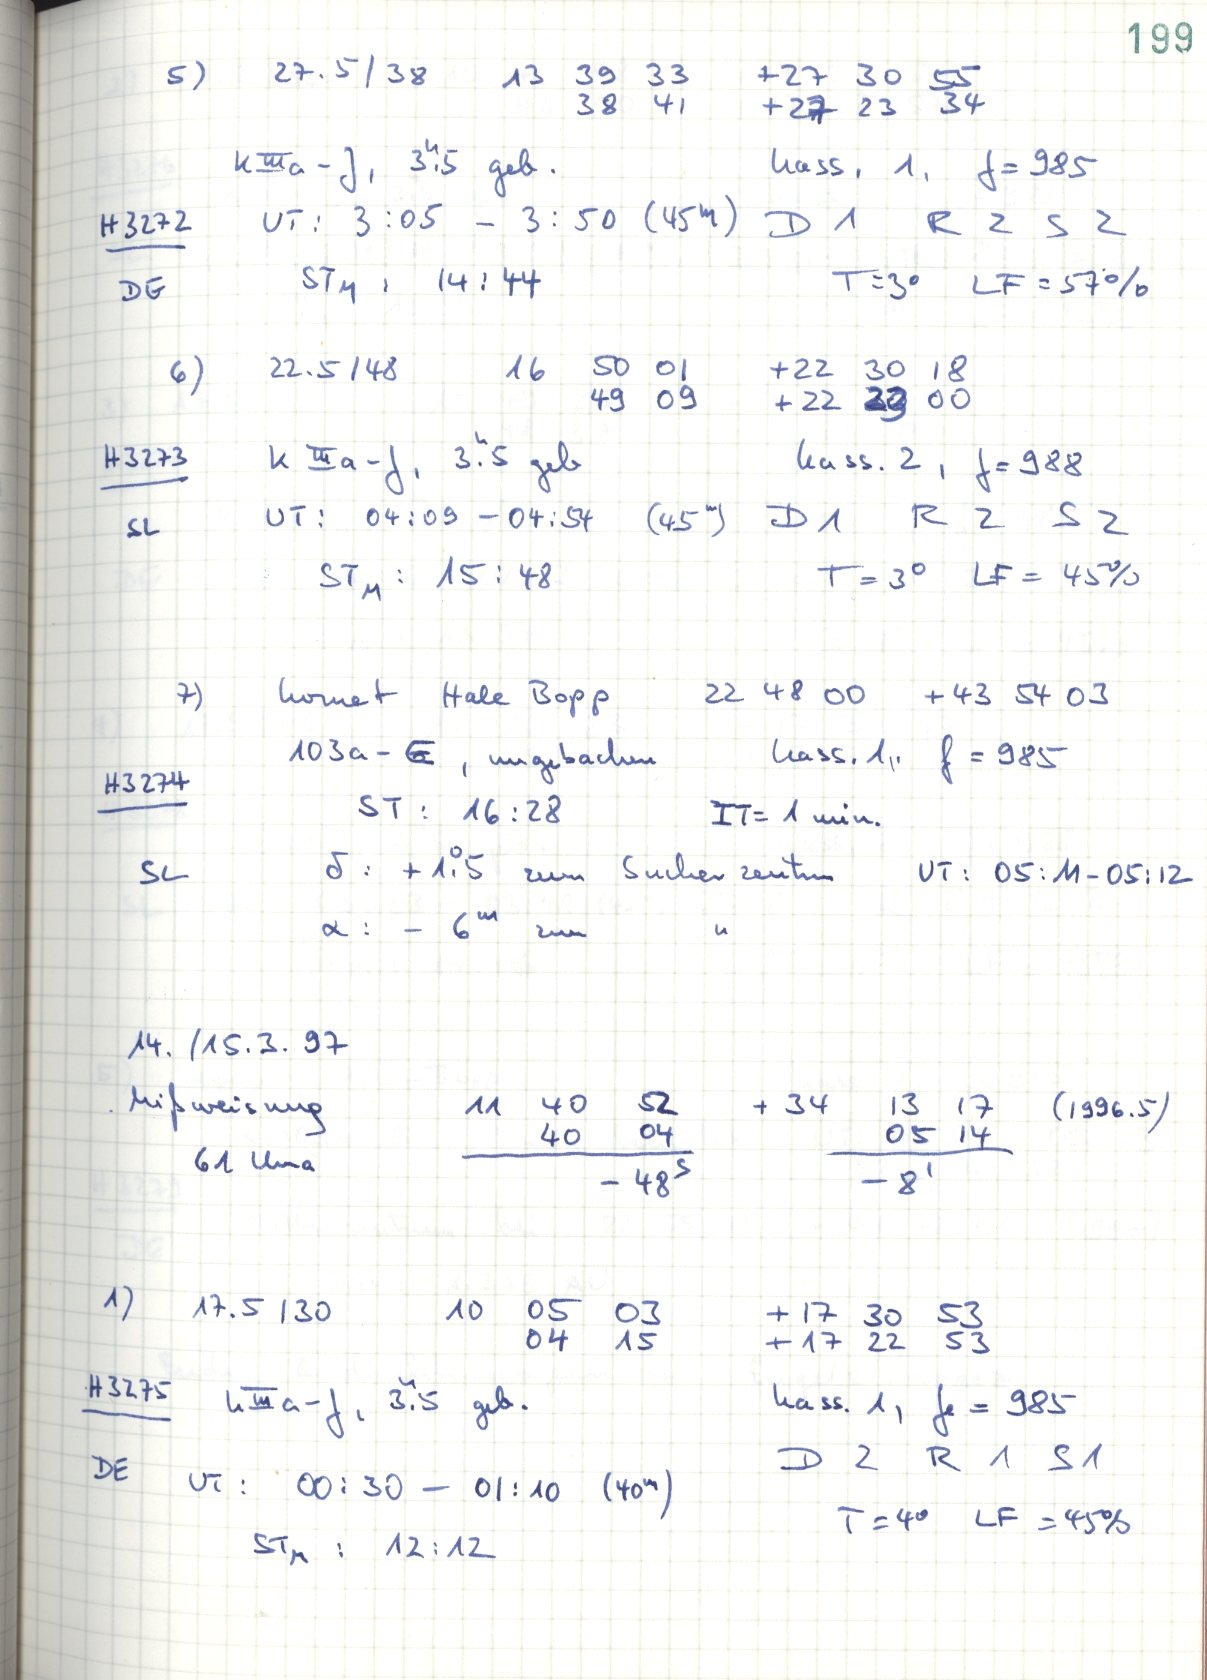 199
5) 27.5/38 13 39 33 +27 30 55
38 41 +27 23 34
kIIIa-J, 3ʰ.5 geb. Kass. 1, f=985
H3272 UT: 3:05 - 3:50 (45ᵐ) D 1 R 2 S 2
DE STM : 14:44 T=3° LF=57%
6) 22.5/48 16 50 01 +22 30 18
49 09 +22 00
H3273 k IIIa-J, 3ʰ.5 geb Kass. 2, f=988
SL UT: 04:09 - 04:54 (45ᵐ) D 1 R 2 S 2
STM : 15:48 T=3° LF= 45%
7) Komet Hale Bopp 22 48 00 +43 54 03
103a-E, ungebacken Kass. 1, f=985
H3274 ST: 16:28 IT= 1 min.
SL δ: +1°.5 zum Sucherzentrum UT: 05:11-05:12
α: - 6ᵐ zum "
14./15.3.97
Mißweisung 11 40 52 +34 13 17 (1996.5)
40 04 05 14
61 Uma -48ˢ -8'
1) 17.5/30 10 05 03 +17 30 53
04 15 +17 22 53
H3275 kIIIa-J, 3ʰ.5 geb. Kass. 1, f = 985
DE D 2 R 1 S 1
UT: 00:30 - 01:10 (40ᵐ)
T=4° LF =45%
STM : 12:12